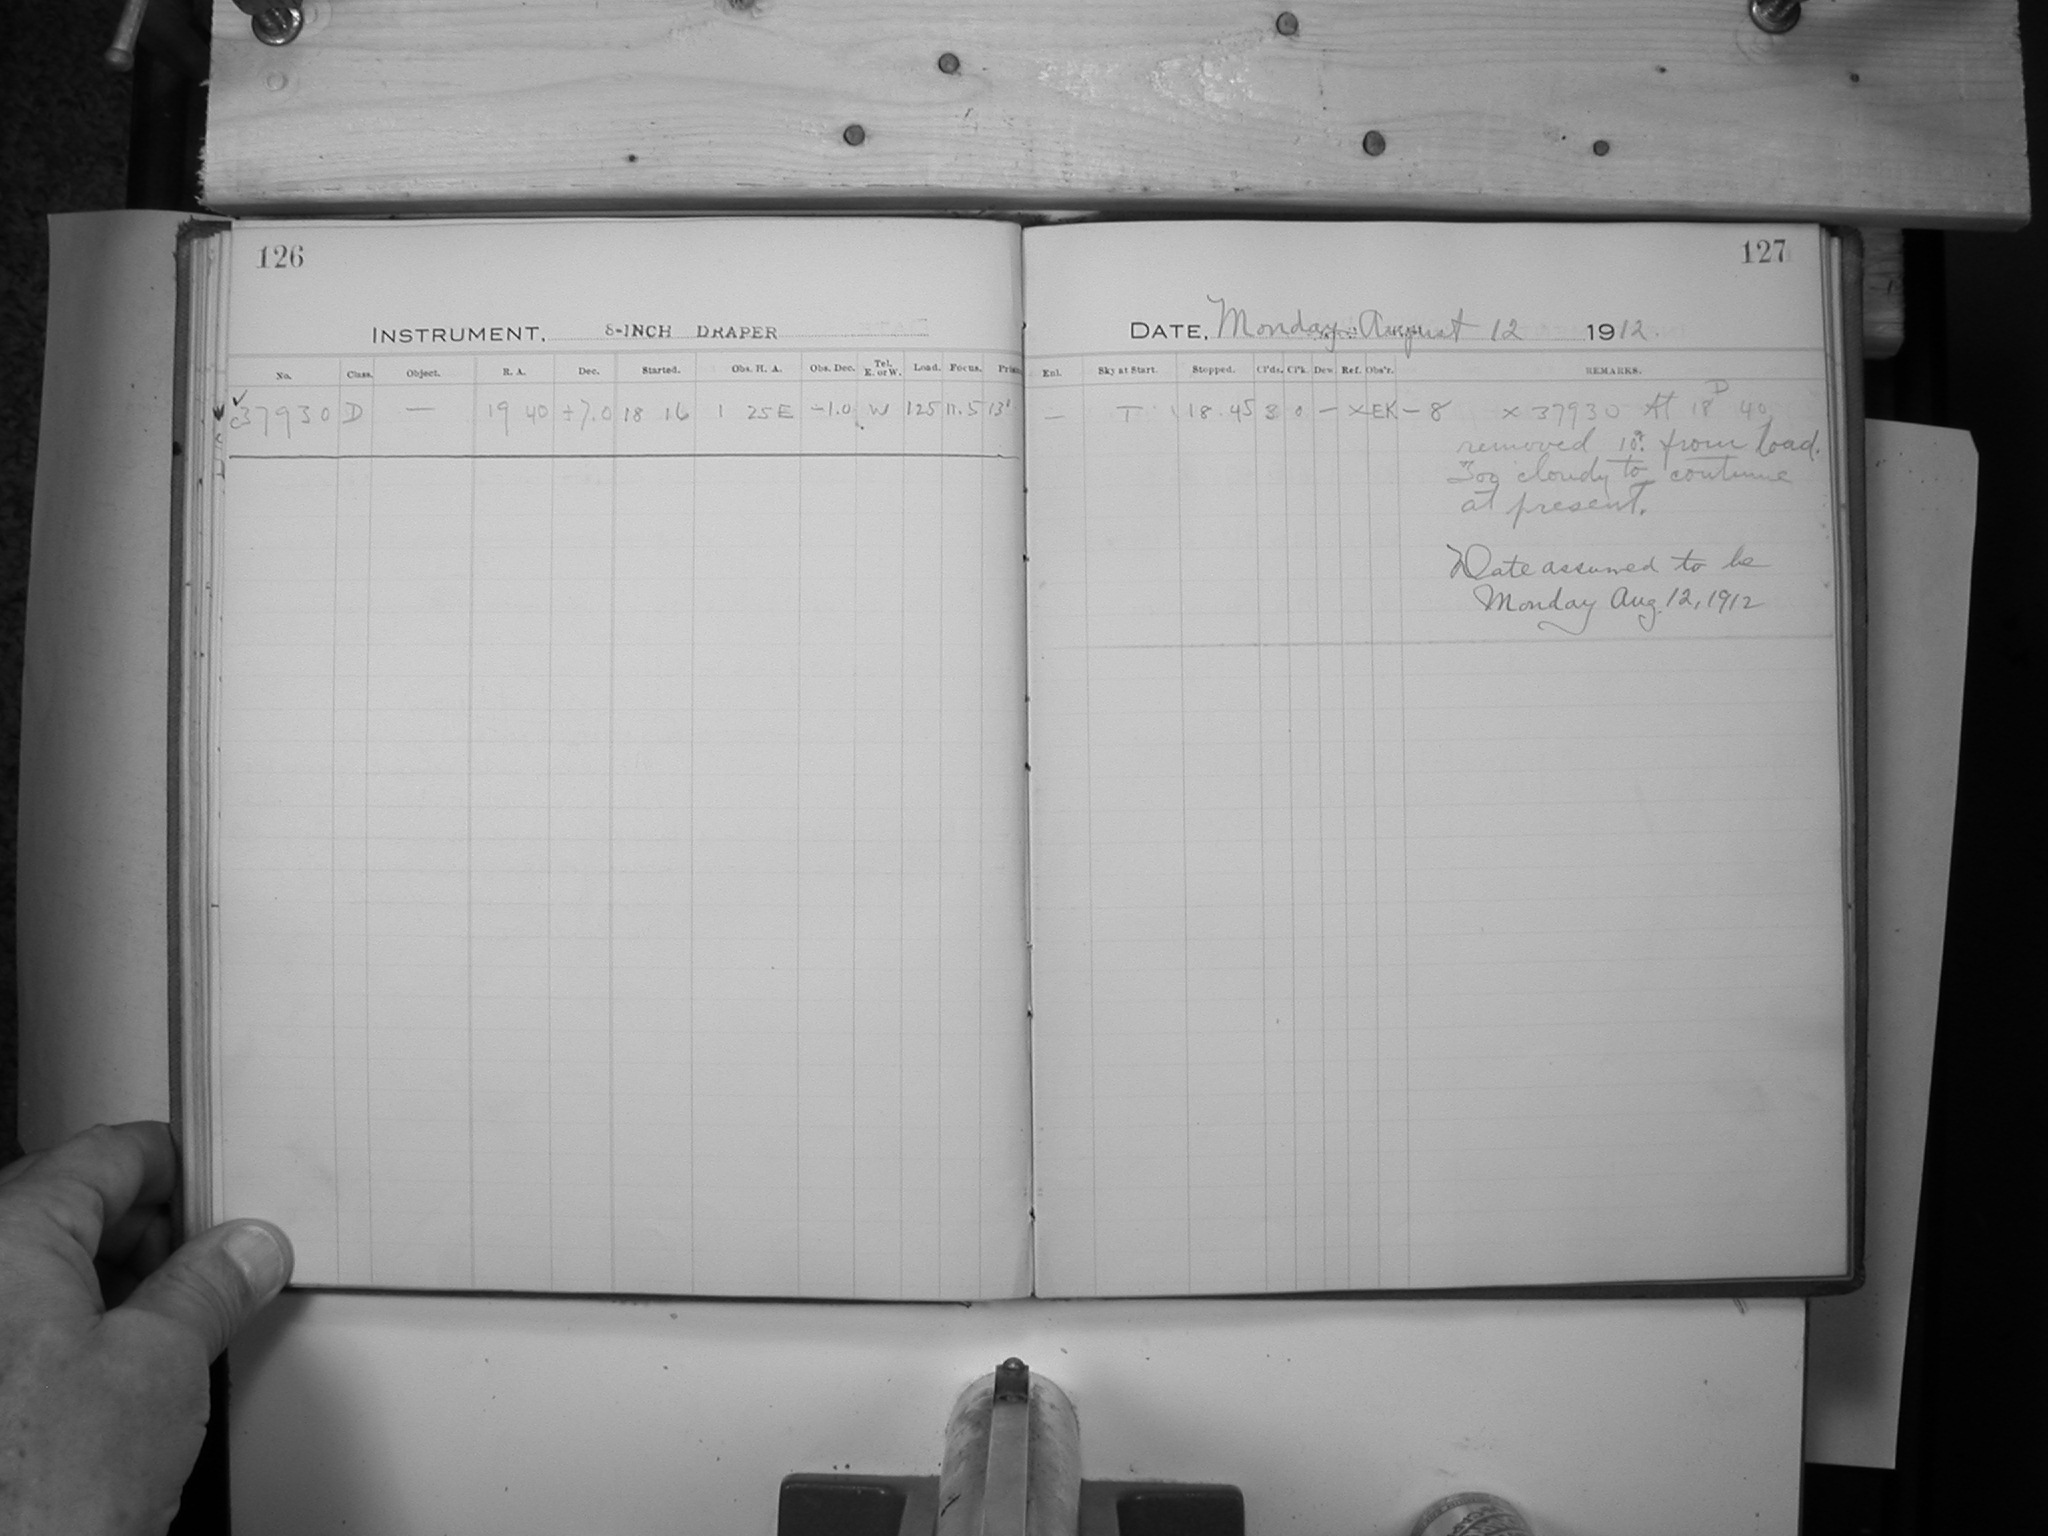 126
INSTRUMENT, 8-INCH DRAPER
No. Class. Object. R. A. Dec. Started. Obs. H. A. Obs. Dec. Tel. E. or W. Load. Focus.
37930 D — 19 40 +7.0 18 16 1 25 E -1.0 W 125 11.5
127
DATE, Monday August 12 1912.
Enl. Sky at Start. Stopped. Cl'ds. Cl'k. Dew. Ref. Obs'r. REMARKS.
— T 18.45 3 0 — × EK — 8 × 37930 At 18 40
removed from load.
Too cloudy to continue
at present.
Date assumed to be
Monday Aug. 12, 1912